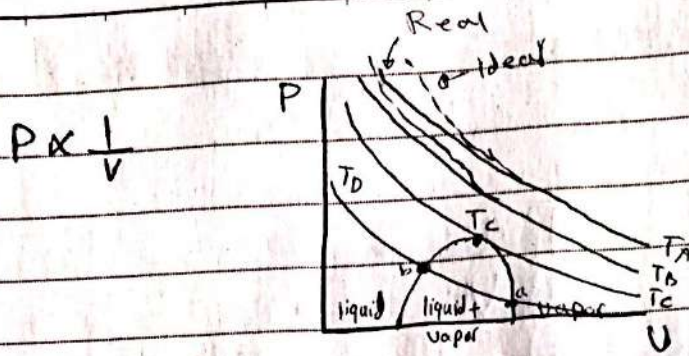 Real
Ideal
P
P ∝ 1/V
T_D
T_C
T_A
T_B
T_C
b
a
liquid
liquid +
vapor
vapor
V